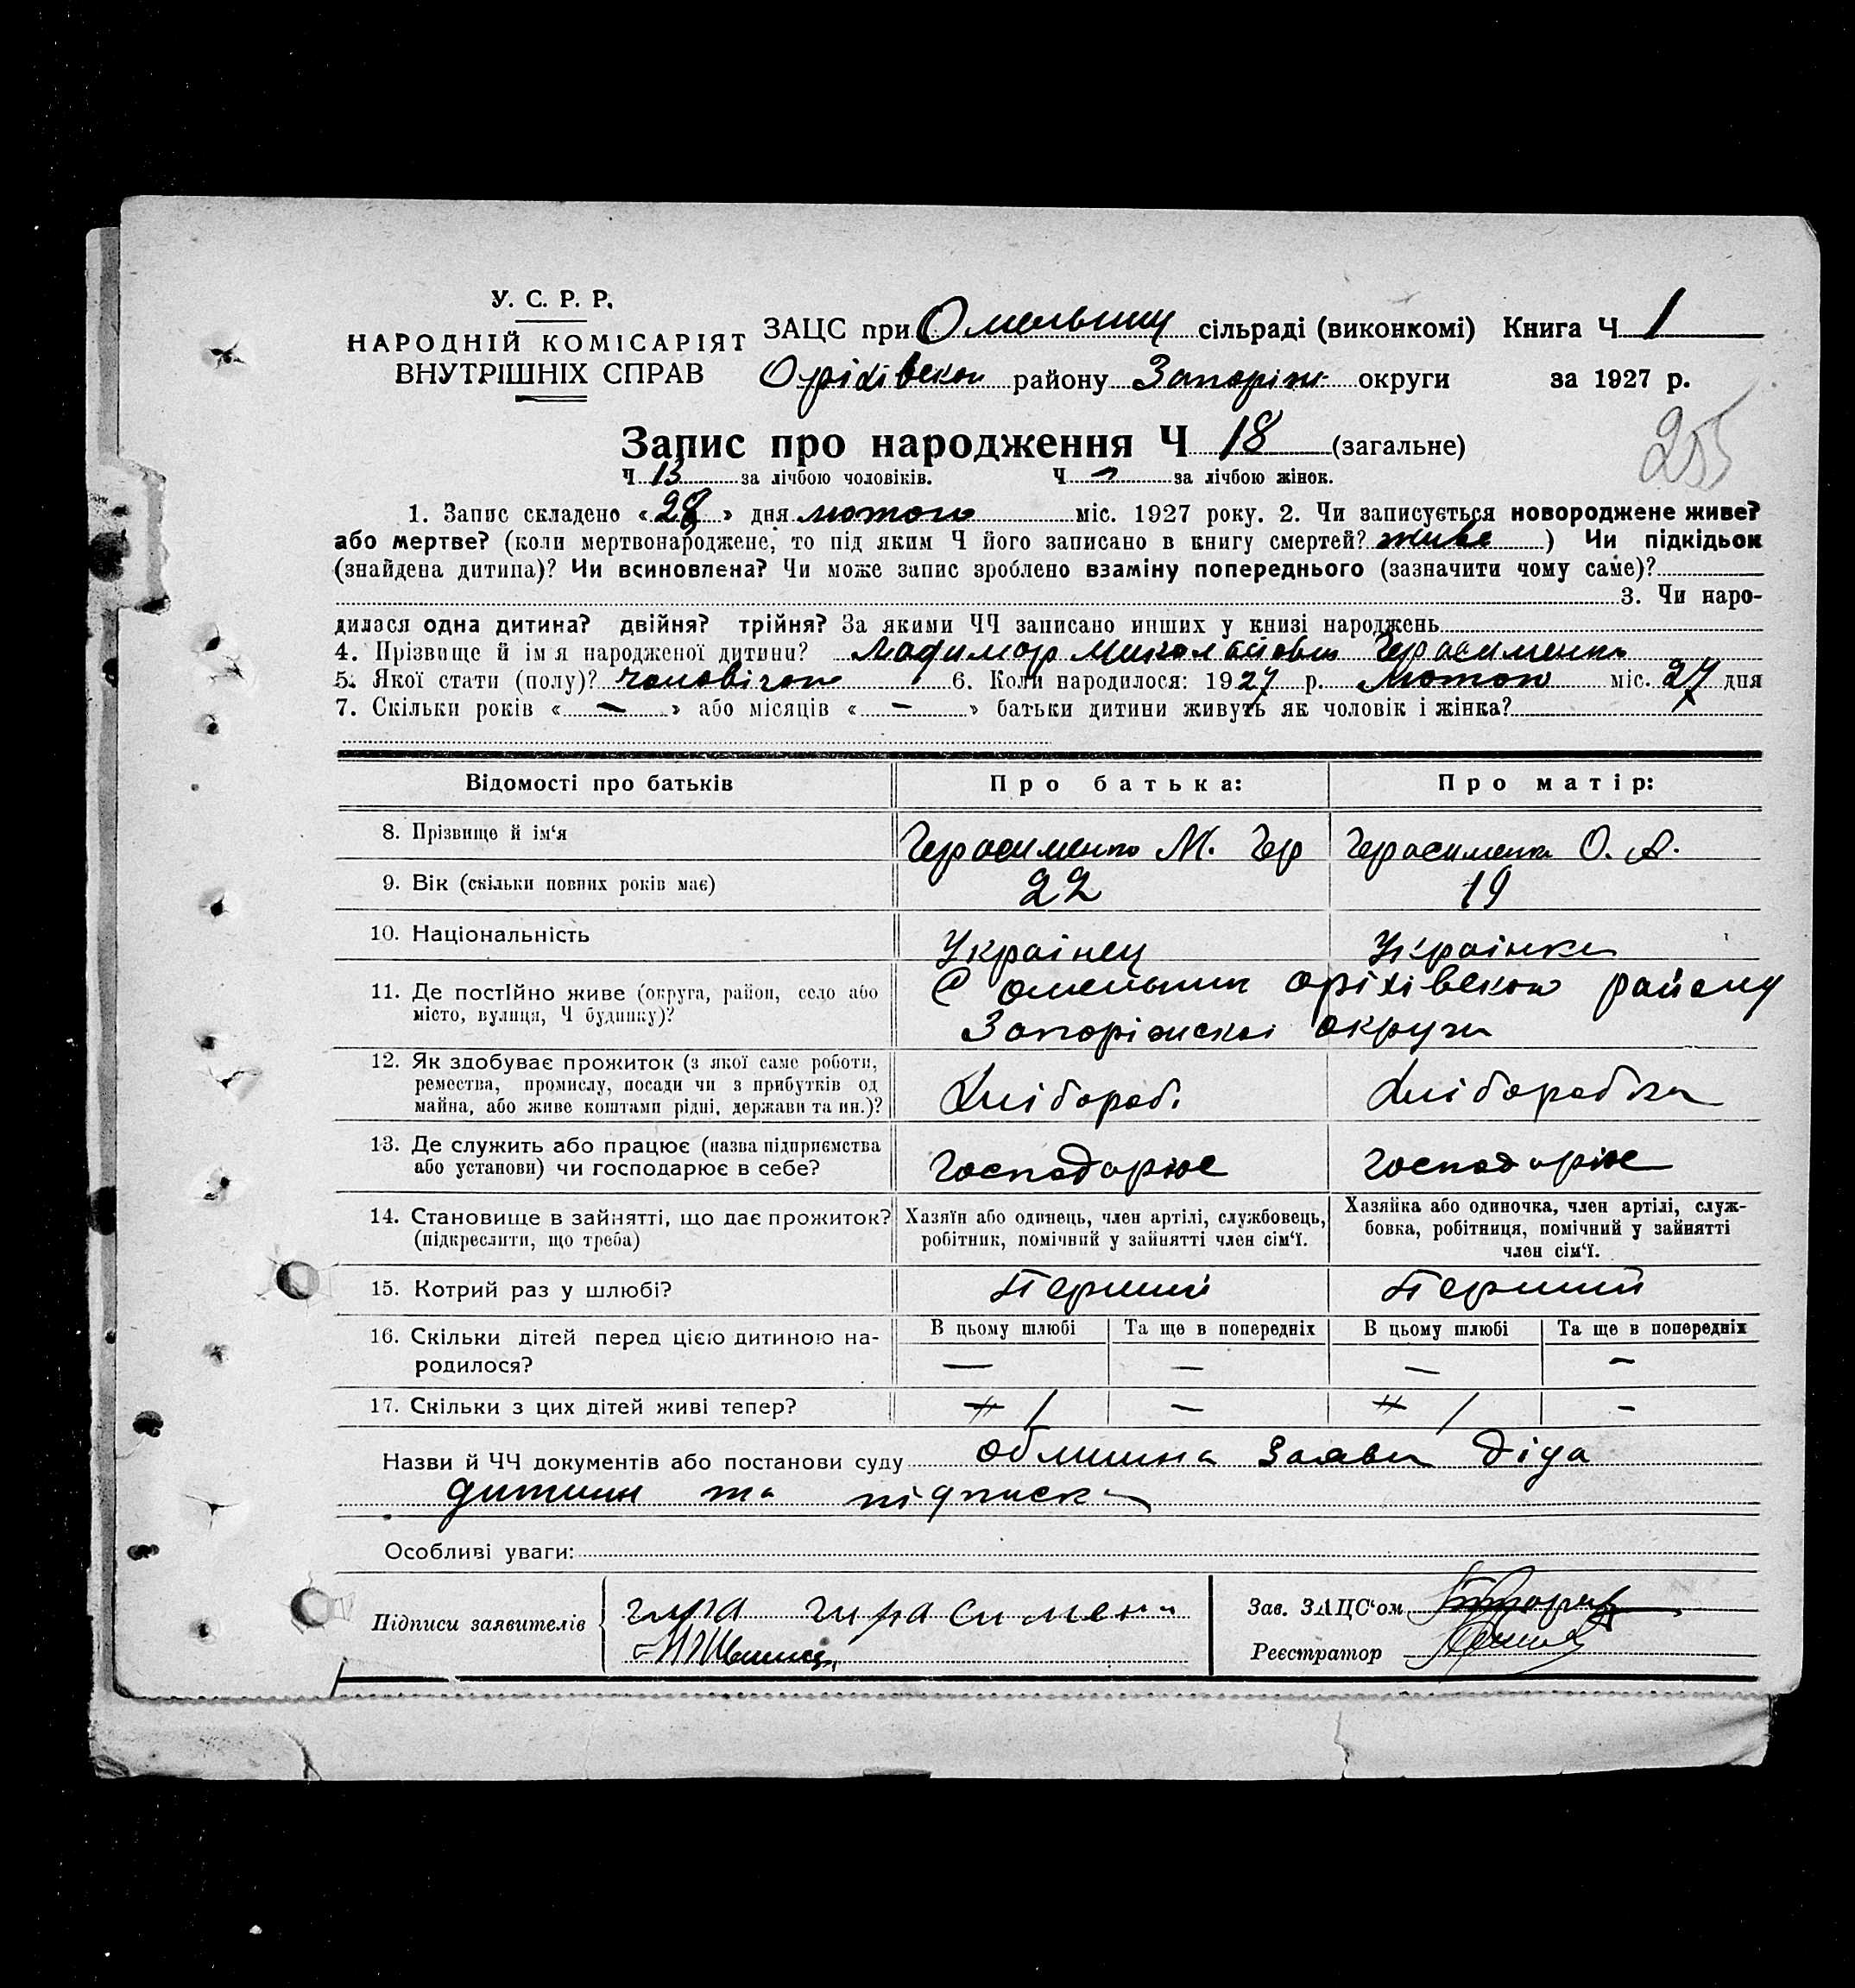 У. С. Р. Р.
НАРОДНІЙ КОМІСАРІЯТ
ВНУТРІШНІХ СПРАВ
ЗАЦС при сільраді (виконкомі) Книга Ч 1
Оріхівськ району Запоріж округи за 1927 р.
255
Запис про народження Ч 18 (загальне)
Ч 13 за лічбою чоловіків. Ч – за лічбою жінок.
1. Запис складено «28» дня лютого міс. 1927 року. 2. Чи записується новороджене живе?
або мертве? (коли мертвонароджене, то під яким Ч його записано в книгу смертей? живе ) Чи підкідьок
(знайдена дитина)? Чи всиновлена? Чи може запис зроблено взаміну попереднього (зазначити чому саме)?
3. Чи наро-
дилася одна дитина? двійня? трійня? За якими ЧЧ записано инших у книзі народжень
4. Прізвище й ім я народженої дитини? Герасименко
5. Якої стати (полу)? 6. Коли народилося: 1927 р. Лютого міс. 27 дня
7. Скільки років « — » або місяців « – » батьки дитини живуть як чоловік і жінка?
Відомості про батьків Про батька: Про матір:
8. Прізвище й ім'я Герасименко М. Гер Герасименко О. А.
9. Вік (скільки повних років має) 22 19
10. Національність Українец Українка
11. Де постійно живе (округа, район, село або С Омельник Оріхівського району
місто, вулиця, Ч будинку)? Запоріжської округи
12. Як здобуває прожиток (з якої саме роботи,
ремества, промислу, посади чи з прибутків од
майна, або живе коштами рідні, держави та ин.)? Хлібороб. Хлiборобка
13. Де служить або працює (назва підприємства
або установи) чи господарює в себе? Господарює Господарює
14. Становище в зайнятті, що дає прожиток?
(підкреслити, що треба)
Хазяїн або одинець, член артілі, службовець,
робітник, помічний у зайнятті член сім'ї.
Хазяйка або одиночка, член артілі, служ-
бовка, робітниця, помічний у зайнятті
член сім'ї.
15. Котрий раз у шлюбі? Перший Перший
В цьому шлюбі Та ще в попередніх В цьому шлюбі Та ще в попередніх
16. Скільки дітей перед цією дитиною на-
родилося? — — — —
17. Скільки з цих дітей живі тепер? 1 — 1 —
Назви й ЧЧ документів або постанови суду заява діда
дитини та підписка
Особливі уваги:
Підписи заявителів
Зав. ЗАЦС'ом
Реєстратор